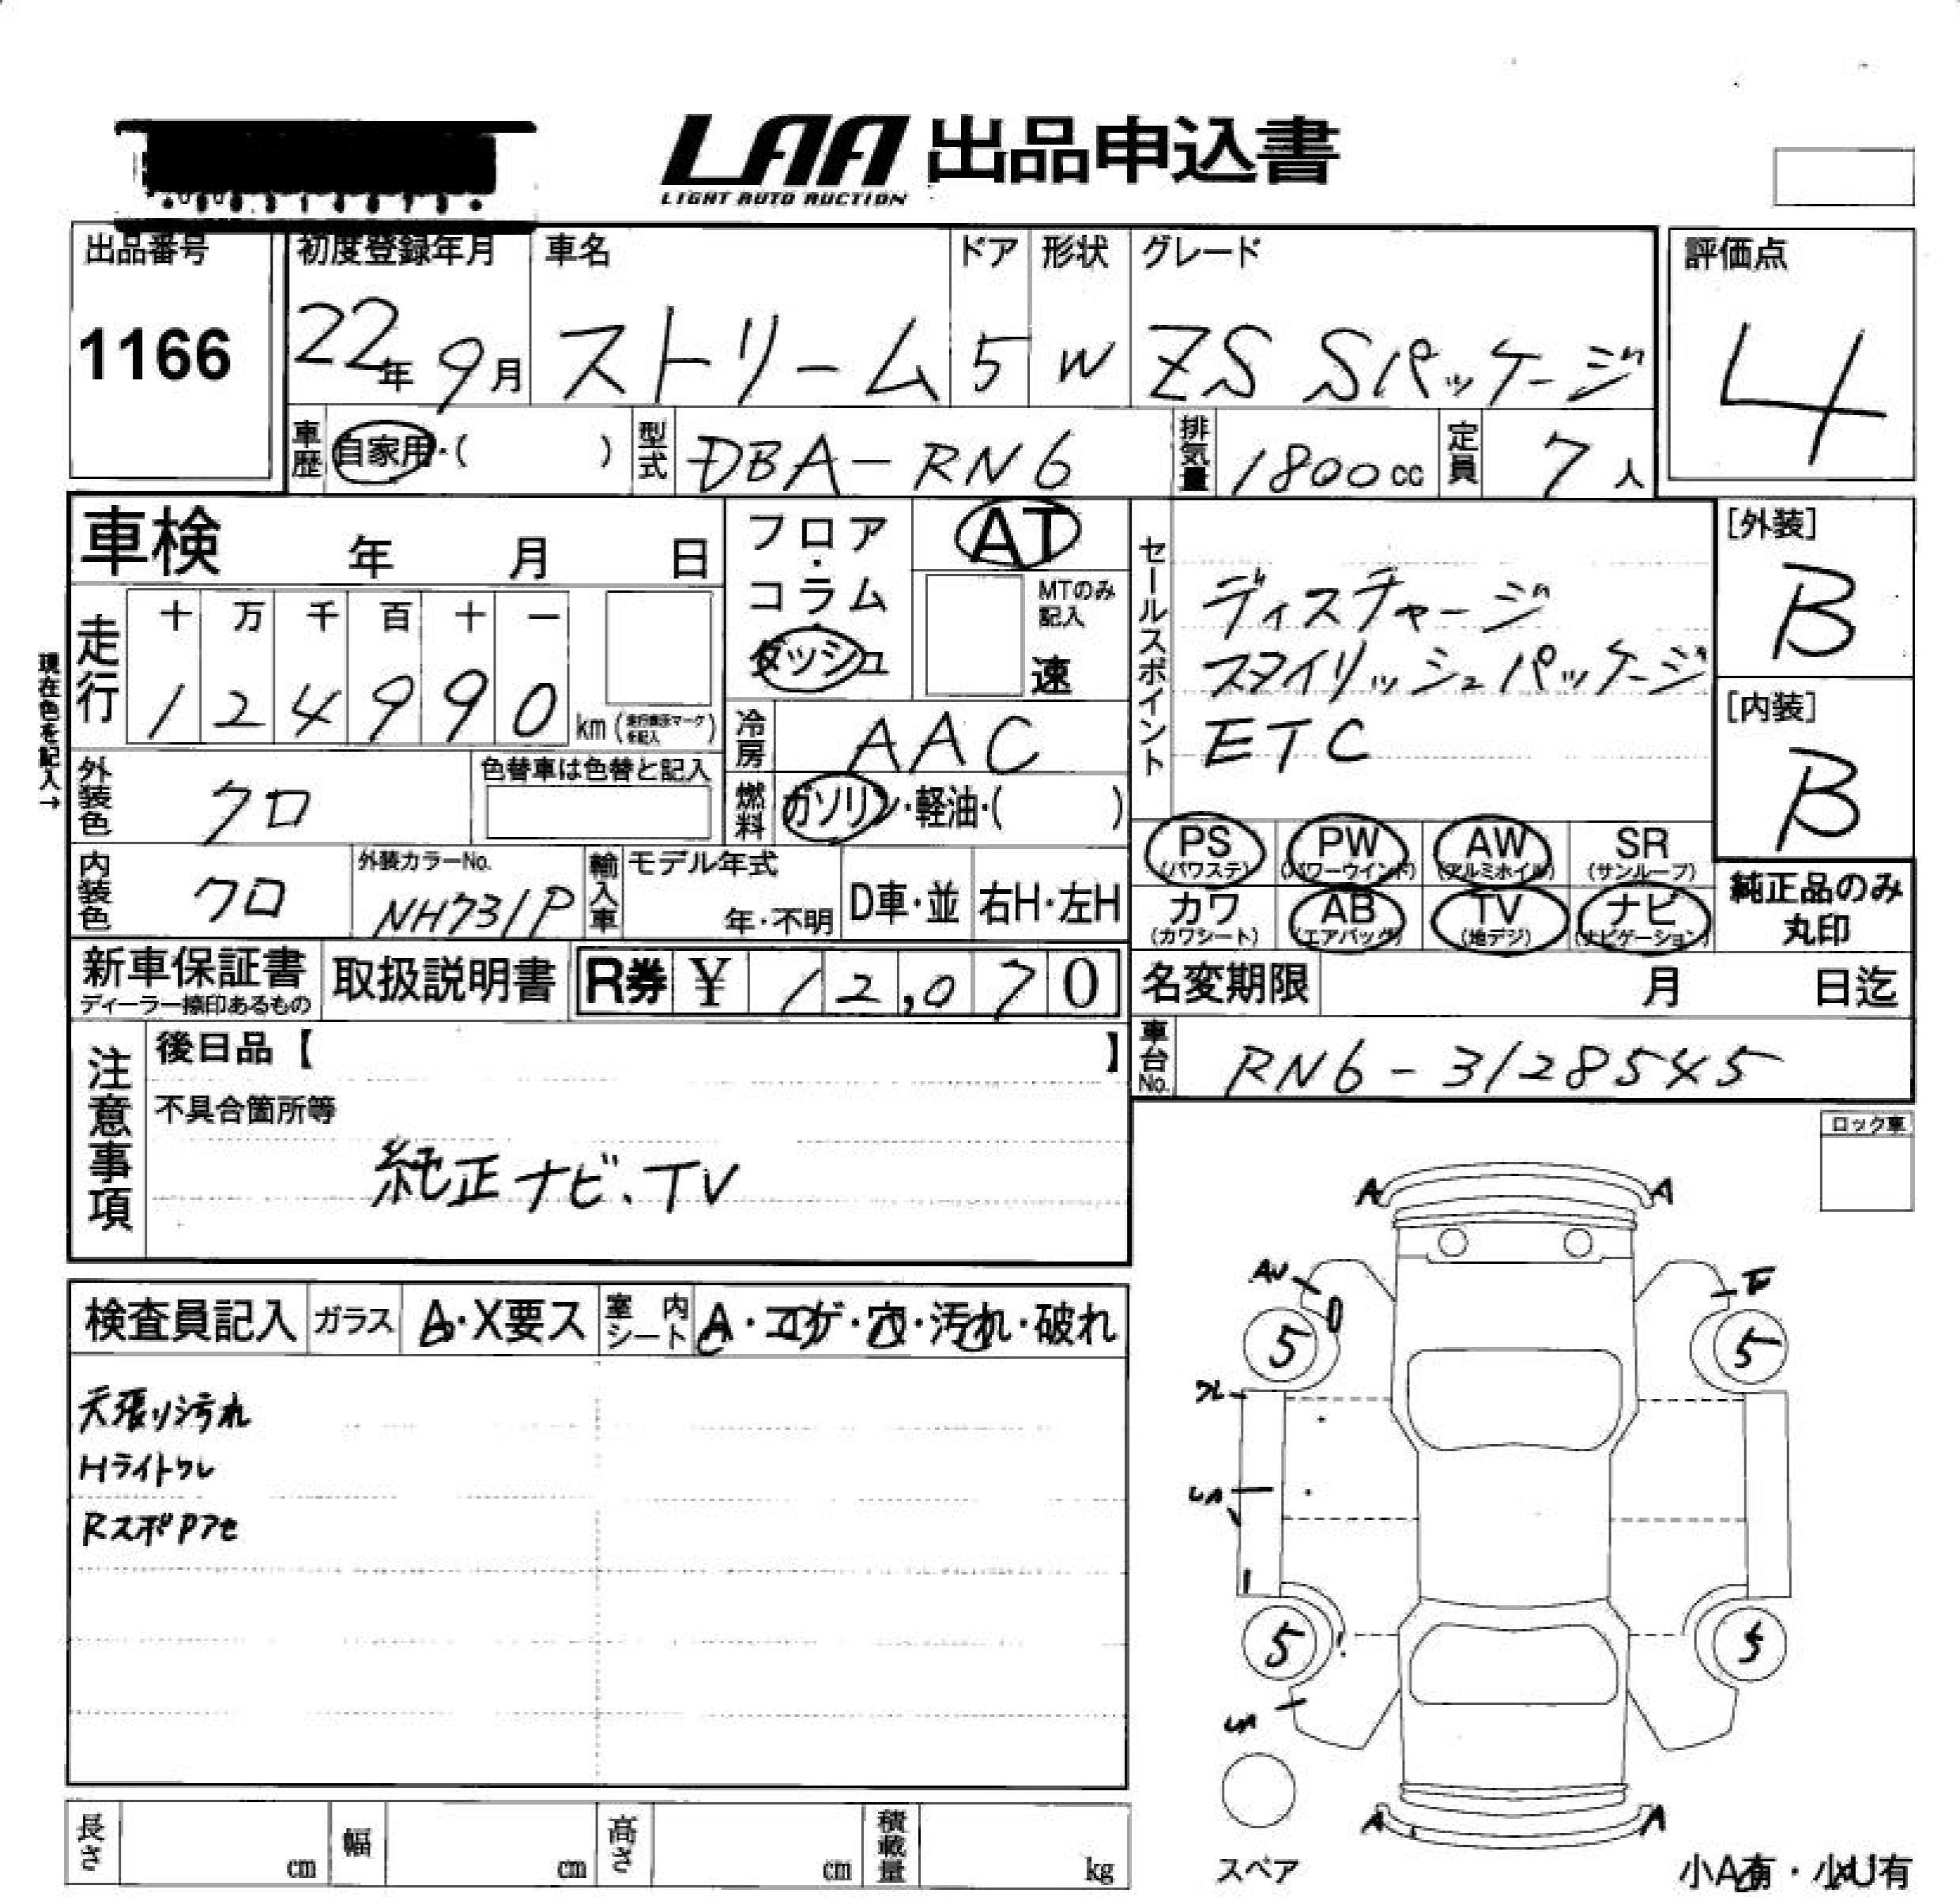 LAA 出品申込書
LIGHT AUTO AUCTION
出品番号
1166
初度登録年月
22年 9月
車名
ストリーム
ドア
5
形状
W
グレード
ZS Sパッケージ
評価点
4
車歴 自家用・( )
型式 DBA-RN6
排気量 1800cc
定員 7人
車検 年 月 日
フロア・コラム
ダッシュ
AT
MTのみ記入
速
セールスポイント
ディスチャージ
スタイリッシュパッケージ
ETC
[外装]
B
[内装]
B
現在色を記入→
走行
十 万 千 百 十 一
1 2 4 9 9 0 km
冷房 AAC
外装色 クロ
色替車は色替と記入
燃料 ガソリン・軽油・( )
PS (パワステ)
PW (パワーウインド)
AW (アルミホイル)
SR (サンルーフ)
カワ (カワシート)
AB (エアバッグ)
TV (地デジ)
ナビ (ナビゲーション)
純正品のみ丸印
内装色 クロ
外装カラーNo.
NH731P
輸入車
モデル年式
年・不明
D車・並
右H・左H
新車保証書
ディーラー捺印あるもの
取扱説明書
R券 ¥ 12,070
名変期限 月 日迄
車台No. RN6-3128545
注意事項
後日品【 】
不具合箇所等
純正ナビ、TV
ロック車
検査員記入
ガラス A・X要ス
室内シート A・コゲ・穴・汚れ・破れ
天張り汚れ
Hライトクレ
RスポPアセ
A A
AU
5 5
5 5
A A
スペア
小A有・小U有
長さ cm
幅 cm
高さ cm
積載量 kg